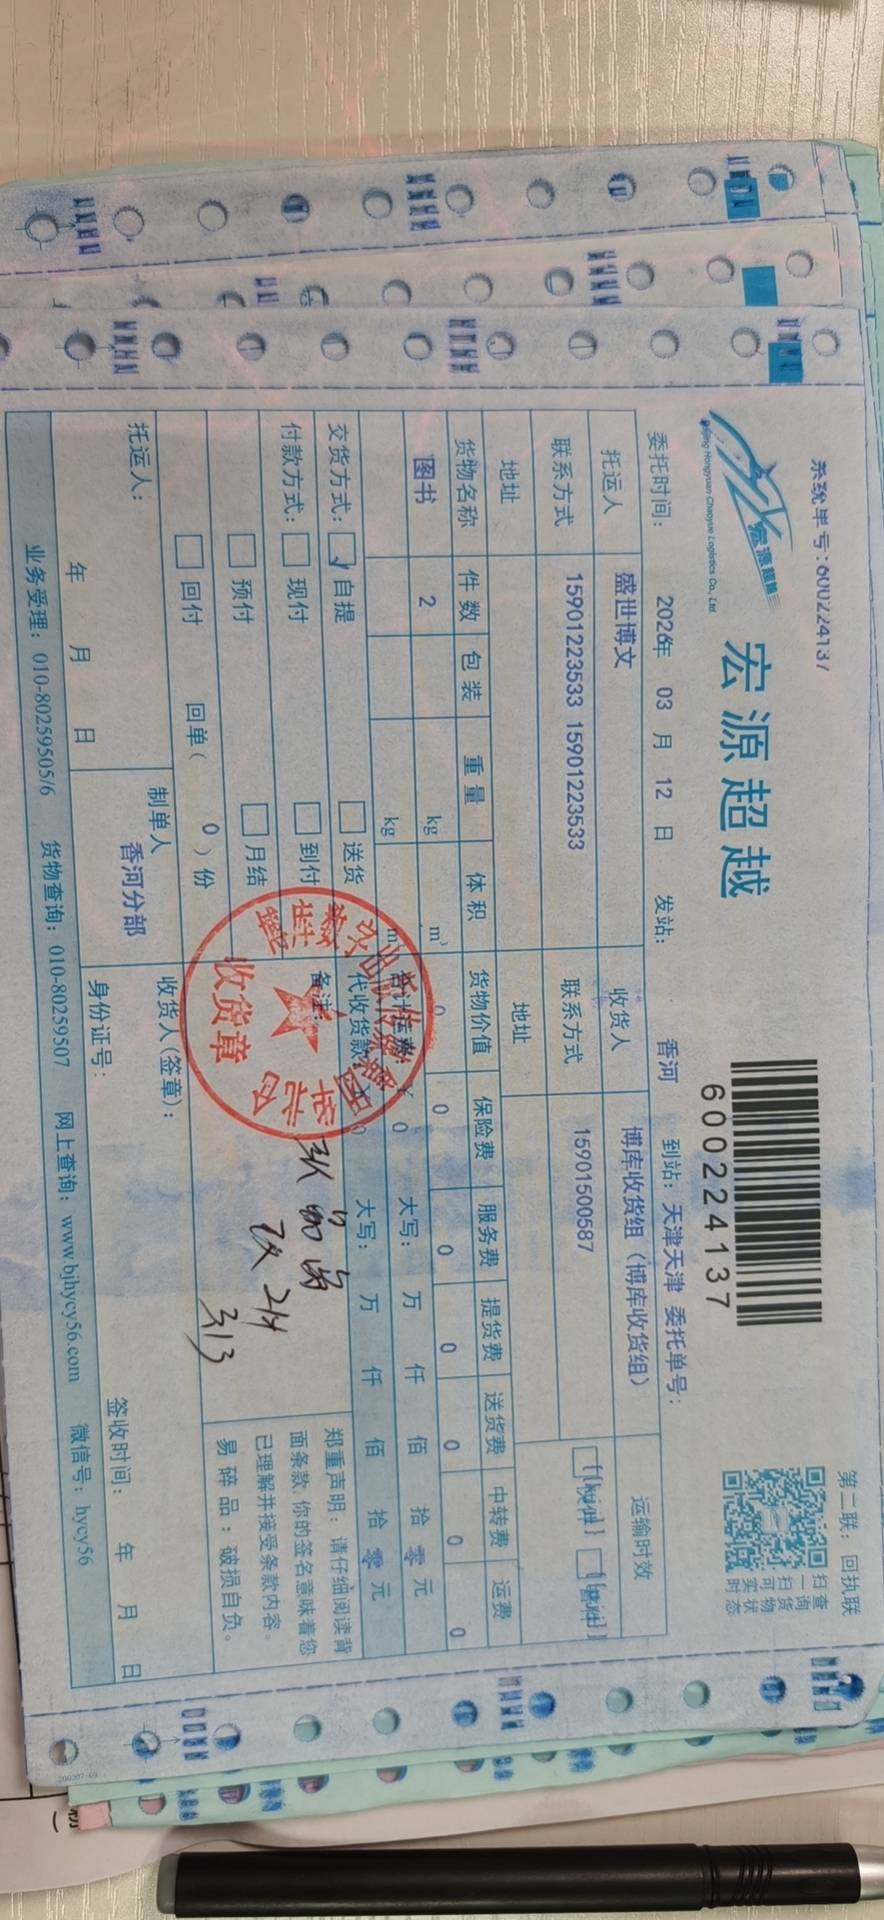 系统单号:600224137
第二联：回执联
宏源超越
Beijing Hongyuan Chaoyue Logistics Co., Ltd.
宏源超越
600224137
扫一扫可实时
查询货物状态
委托时间： 2026年 03 月 12 日 发站： 香河 到站：天津天津 委托单号：
托运人 盛世博文 收货人 博库收货组（博库收货组） 运输时效
联系方式 15901223533 15901223533 联系方式 15901500587
地址 地址
货物名称 件数 包装 重量 体积 货物价值 保险费 服务费 提货费 送货费 中转费 运费
图书 2 kg m³ 0 0 0 0 0 0 0
kg m³ 合计运费：¥ 0 大写： 万 仟 佰 拾 零 元
交货方式： 自提 送货 代收货款 0 大写： 万 仟 佰 拾 零 元
付款方式： 现付 到付 备注：
预付 月结
回付 回单（ 0 ）份
郑重声明：请仔细阅读背
面条款，你的签名意味着您
已理解并接受条款内容。
易碎品：破损自负。
收货章
华北仓
2件
3.13
托运人：
年 月 日
制单人
香河分部
收货人(签章)：
身份证号：
签收时间： 年 月 日
业务受理：010-80259505/6 货物查询：010-80259507 网上查询：www.bjhycy56.com 微信号：hycy56